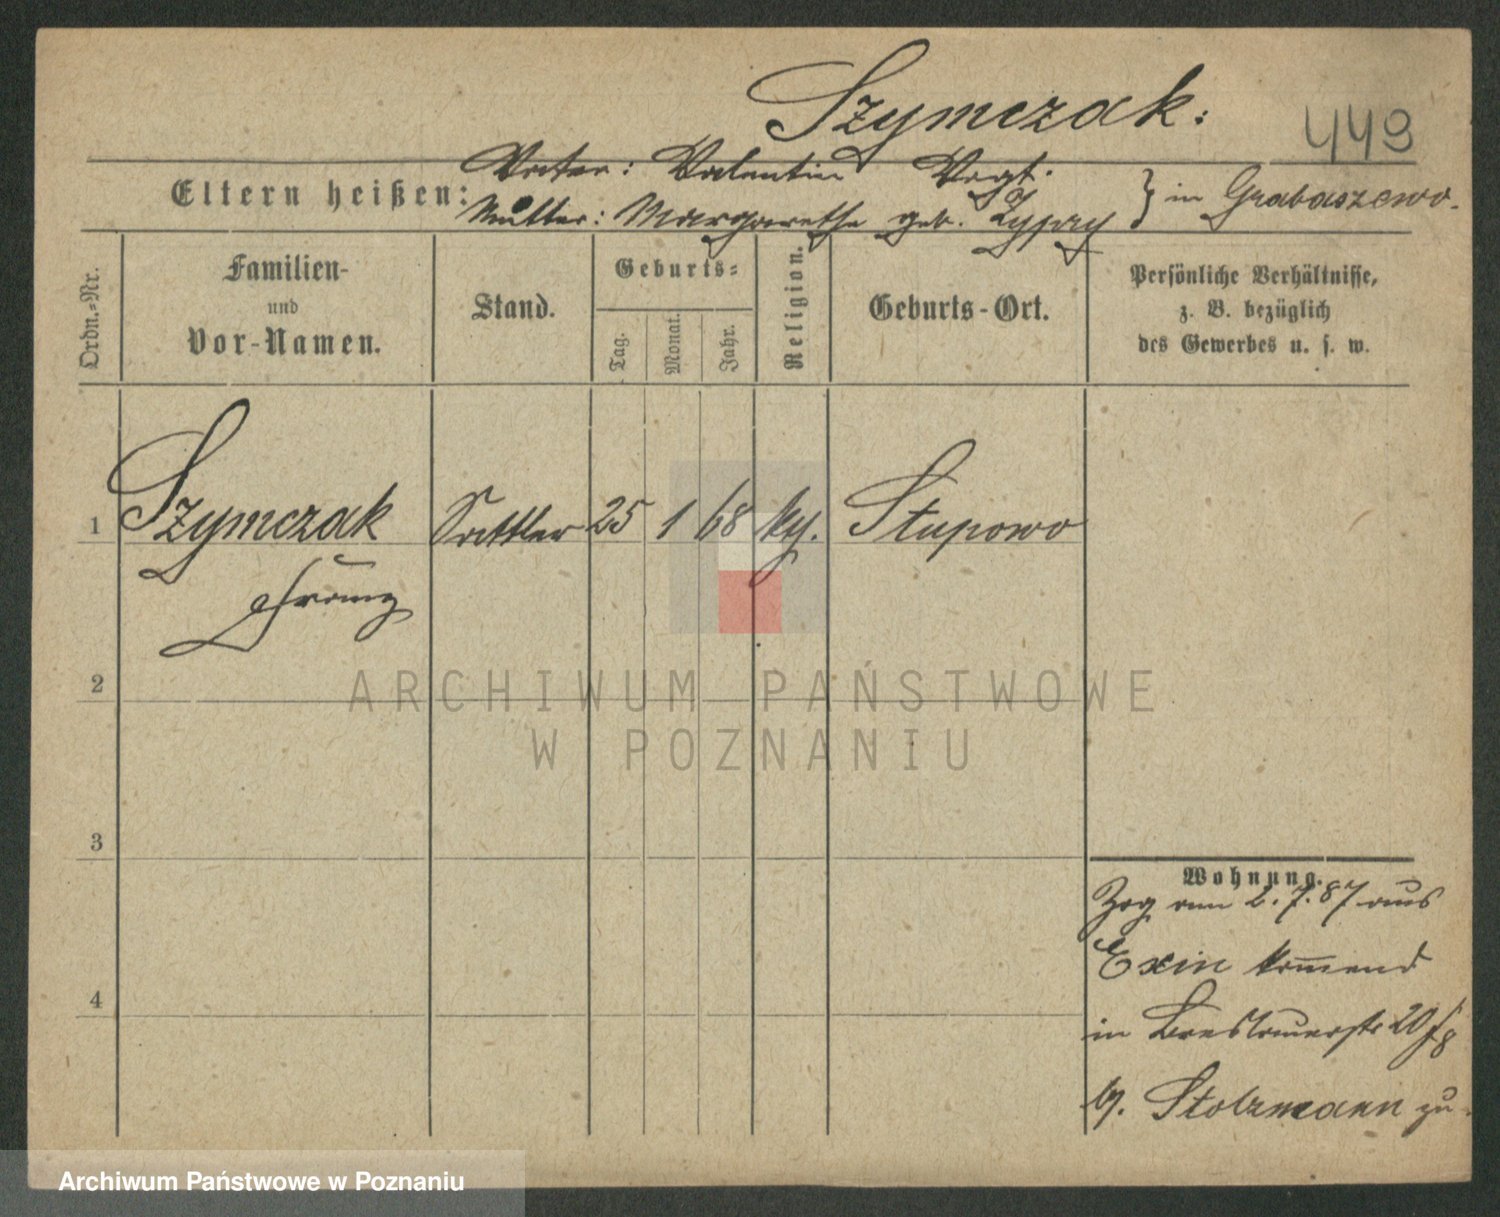 Szymczak:
449
Eltern heißen:
Vater: Valentin Vogt.
Mutter: Margarethe geb.
} in Grabaszewo.
Ordn.=Nr.
Familien-
und
Vor-Namen.
Stand.
Geburts=
Tag.
Monat.
Jahr.
Religion.
Geburts-Ort.
Persönliche Verhältnisse,
z. B. bezüglich
des Gewerbes u. s. w.
1 Szymczak Sattler 25 1 68 kth. Stupowo
Franz
2
ARCHIWUM PAŃSTWOWE
W POZNANIU
3
Wohnung.
Zog am 2.7.87 aus
Exin kommend
4
in Breslauerstr 20
b. Stolzmann zu.
Archiwum Państwowe w Poznaniu